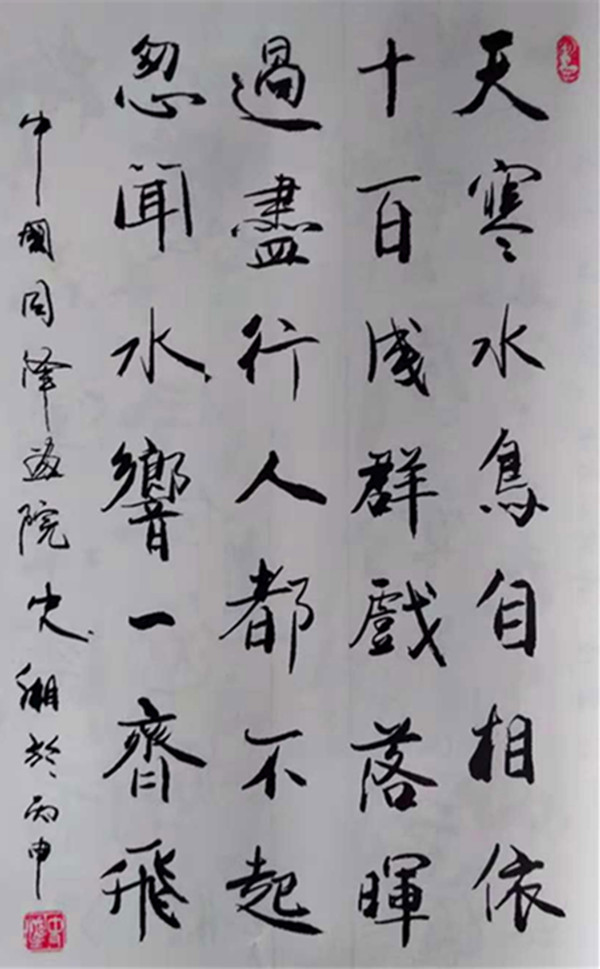 天寒水鳥自相依
十百成群戲落暉
過盡行人都不起
忽聞水響一齊飛
中國同澤畫院史湘於丙申